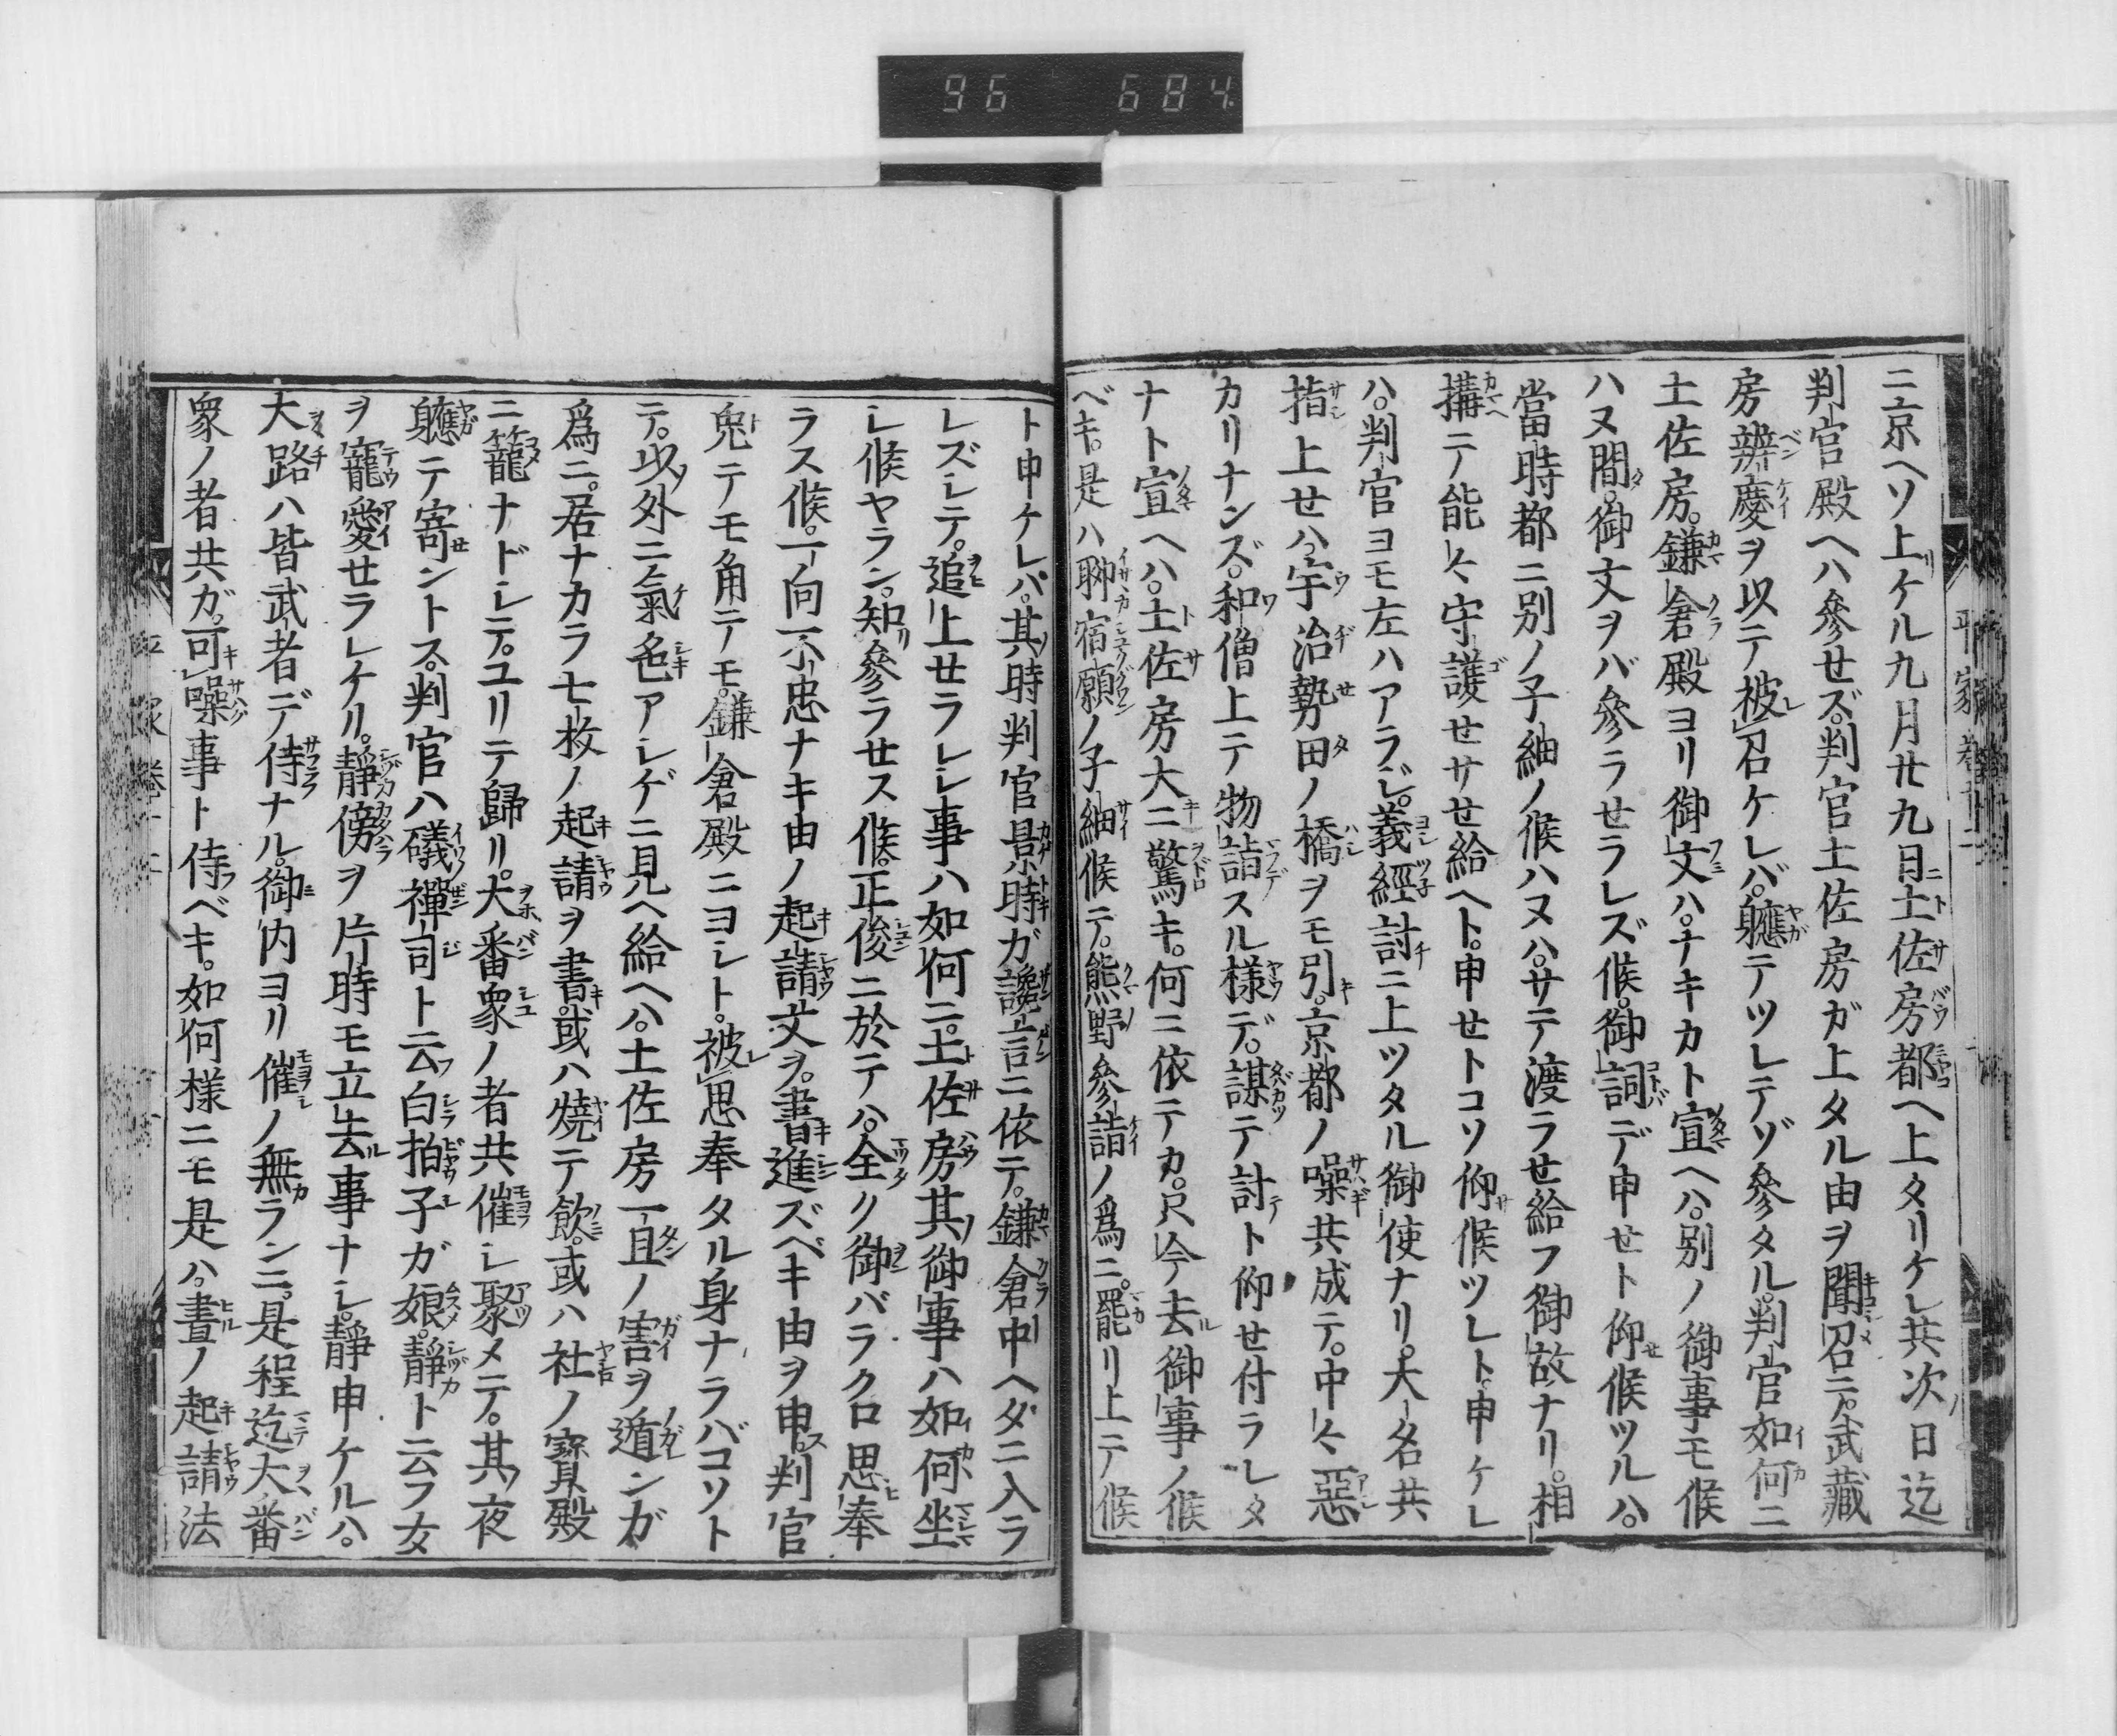 96 684
平家巻十二
ニ京ヘソ上ケル九月廿九日ニ土佐房都ヘ上タリケレ共次ノ日迄
判官殿ヘハ參せズ。判官土佐房ガ上タル由ヲ聞召ニテ。武藏
房辨慶ヲ以テ被召ケレバ。軈テツレテゾ參タル。判官如何ニ
土佐房。鎌倉殿ヨリ御文ハ。ナキカト宣ヘハ。別ノ御事モ候
ハヌ間。御文ヲバ參ラせラレズ候。御詞デ申せト仰せ候ツルハ。
當時都ニ別ノ子細ノ候ハヌハ。サテ渡ラせ給フ御故ナリ。相
搆ニテ能〻守護せサせ給ヘト。申せトコソ仰候ツレト。申ケレ
ハ。判官ヨモ左ハアラジ。義經討ニ上ツタル御使ナリ。大名共
指上せハ。宇治勢田ノ橋ヲモ引。京都ノ噪共成テ。中〻惡
カリナンズ。和僧上テ物詣スル樣デ。謀テ討ト仰せ付ラレタ
ナト宣ヘハ。土佐房大ニ驚キ。何ニ依テカ。只今去御事ノ候
ベキ。是ハ聊宿願ノ子細候テ。熊野參詣ノ爲ニ。罷リ上テ候
ト申ケレバ。其時判官景時ガ讒言ニ依テ。鎌倉中ヘダニ入ラ
レズレテ。追上せラレシ事ハ如何ニ。土佐房其御事ハ如何坐
レ候ヤラン。知參ラせス候。正俊ニ於テハ。全ク御バラクロ思奉
ラス候。一向不忠ナキ由ノ起請文ヲ。書進ズベキ由ヲ申ス。判官
兎テモ角テモ。鎌倉殿ニヨシト。被思奉タル身ナラバコソト
テ。以外ニ氣色アレゲニ見ヘ給ヘハ。土佐房一旦ノ害ヲ遁ンガ
爲ニ。居ナカラ七枚ノ起請ヲ書。或ハ燒テ飲。或ハ社ノ寳殿
ニ籠ナドレテ。ユリテ歸リ。大番衆ノ者共催レ聚メテ。其夜
軈テ寄ントス。判官ハ礒禪司ト云白拍子ガ娘。靜ト云フ女
ヲ寵愛せラレケリ。靜傍ヲ片時モ立去ル事ナシ。靜申ケルハ。
大路ハ皆武者デ侍ナル。御内ヨリ催ノ無ランニ。是程迄大番
衆ノ者共ガ。可噪事ト侍ベキ。如何樣ニモ是ハ。晝ノ起請法